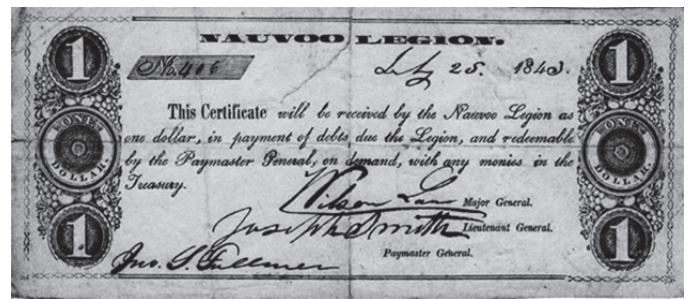 NAUVOO LEGION.
1 1
No. 406
July 25. 1843.
This Certificate will be received by the Nauvoo Legion as
one dollar, in payment of debts due the Legion, and redeemable
by the Paymaster General, on demand, with any monies in the
Treasury.
ONE DOLLAR. ONE DOLLAR.
Wilson Law Major General.
Joseph Smith Lieutenant General.
Jno. S. Fullmer Paymaster General.
1 1